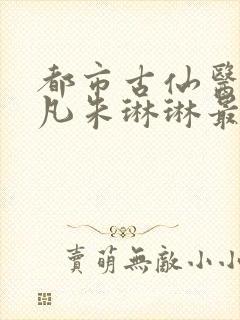 都市古仙醫
凡朱琳琳最
賣萌無敵小小